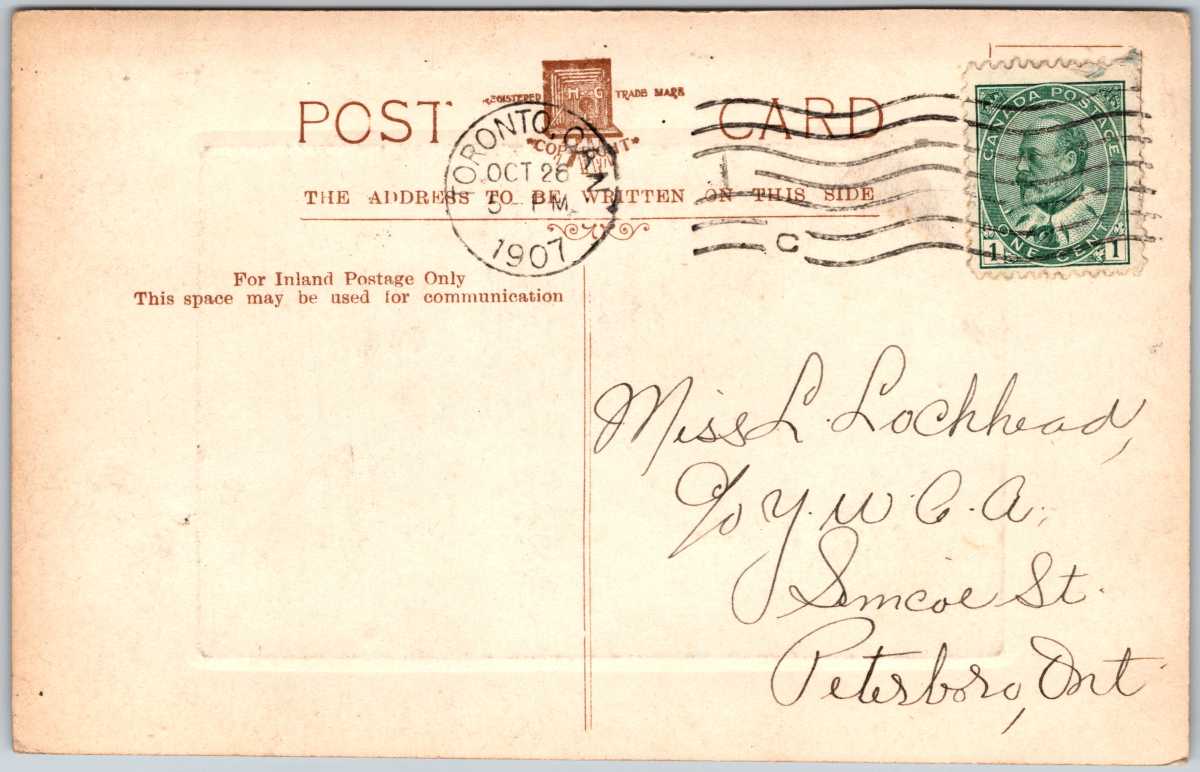 POST CARD
REGISTERED H G TRADE MARK
*COPYRIGHT*
TORONTO, CAN.
OCT 26
5 PM
1907
C
CANADA POSTAGE
1 ONE CENT 1
THE ADDRESS TO BE WRITTEN ON THIS SIDE
For Inland Postage Only
This space may be used for communication
Miss L. Lochhead,
c/o Y.W.C.A.
Simcoe St.
Peterboro, Ont